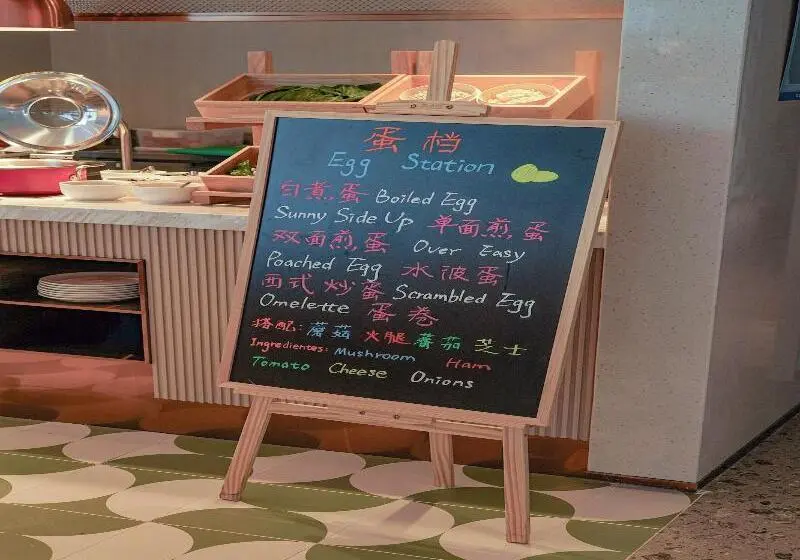 蛋档
Egg Station
白煮蛋 Boiled Egg
Sunny Side Up 单面煎蛋
双面煎蛋 Over Easy
Poached Egg 水波蛋
西式炒蛋 Scrambled Egg
Omelette 蛋卷
搭配: 蘑菇 火腿 蕃茄 芝士
Ingredientes: Mushroom Ham
Tomato Cheese Onions